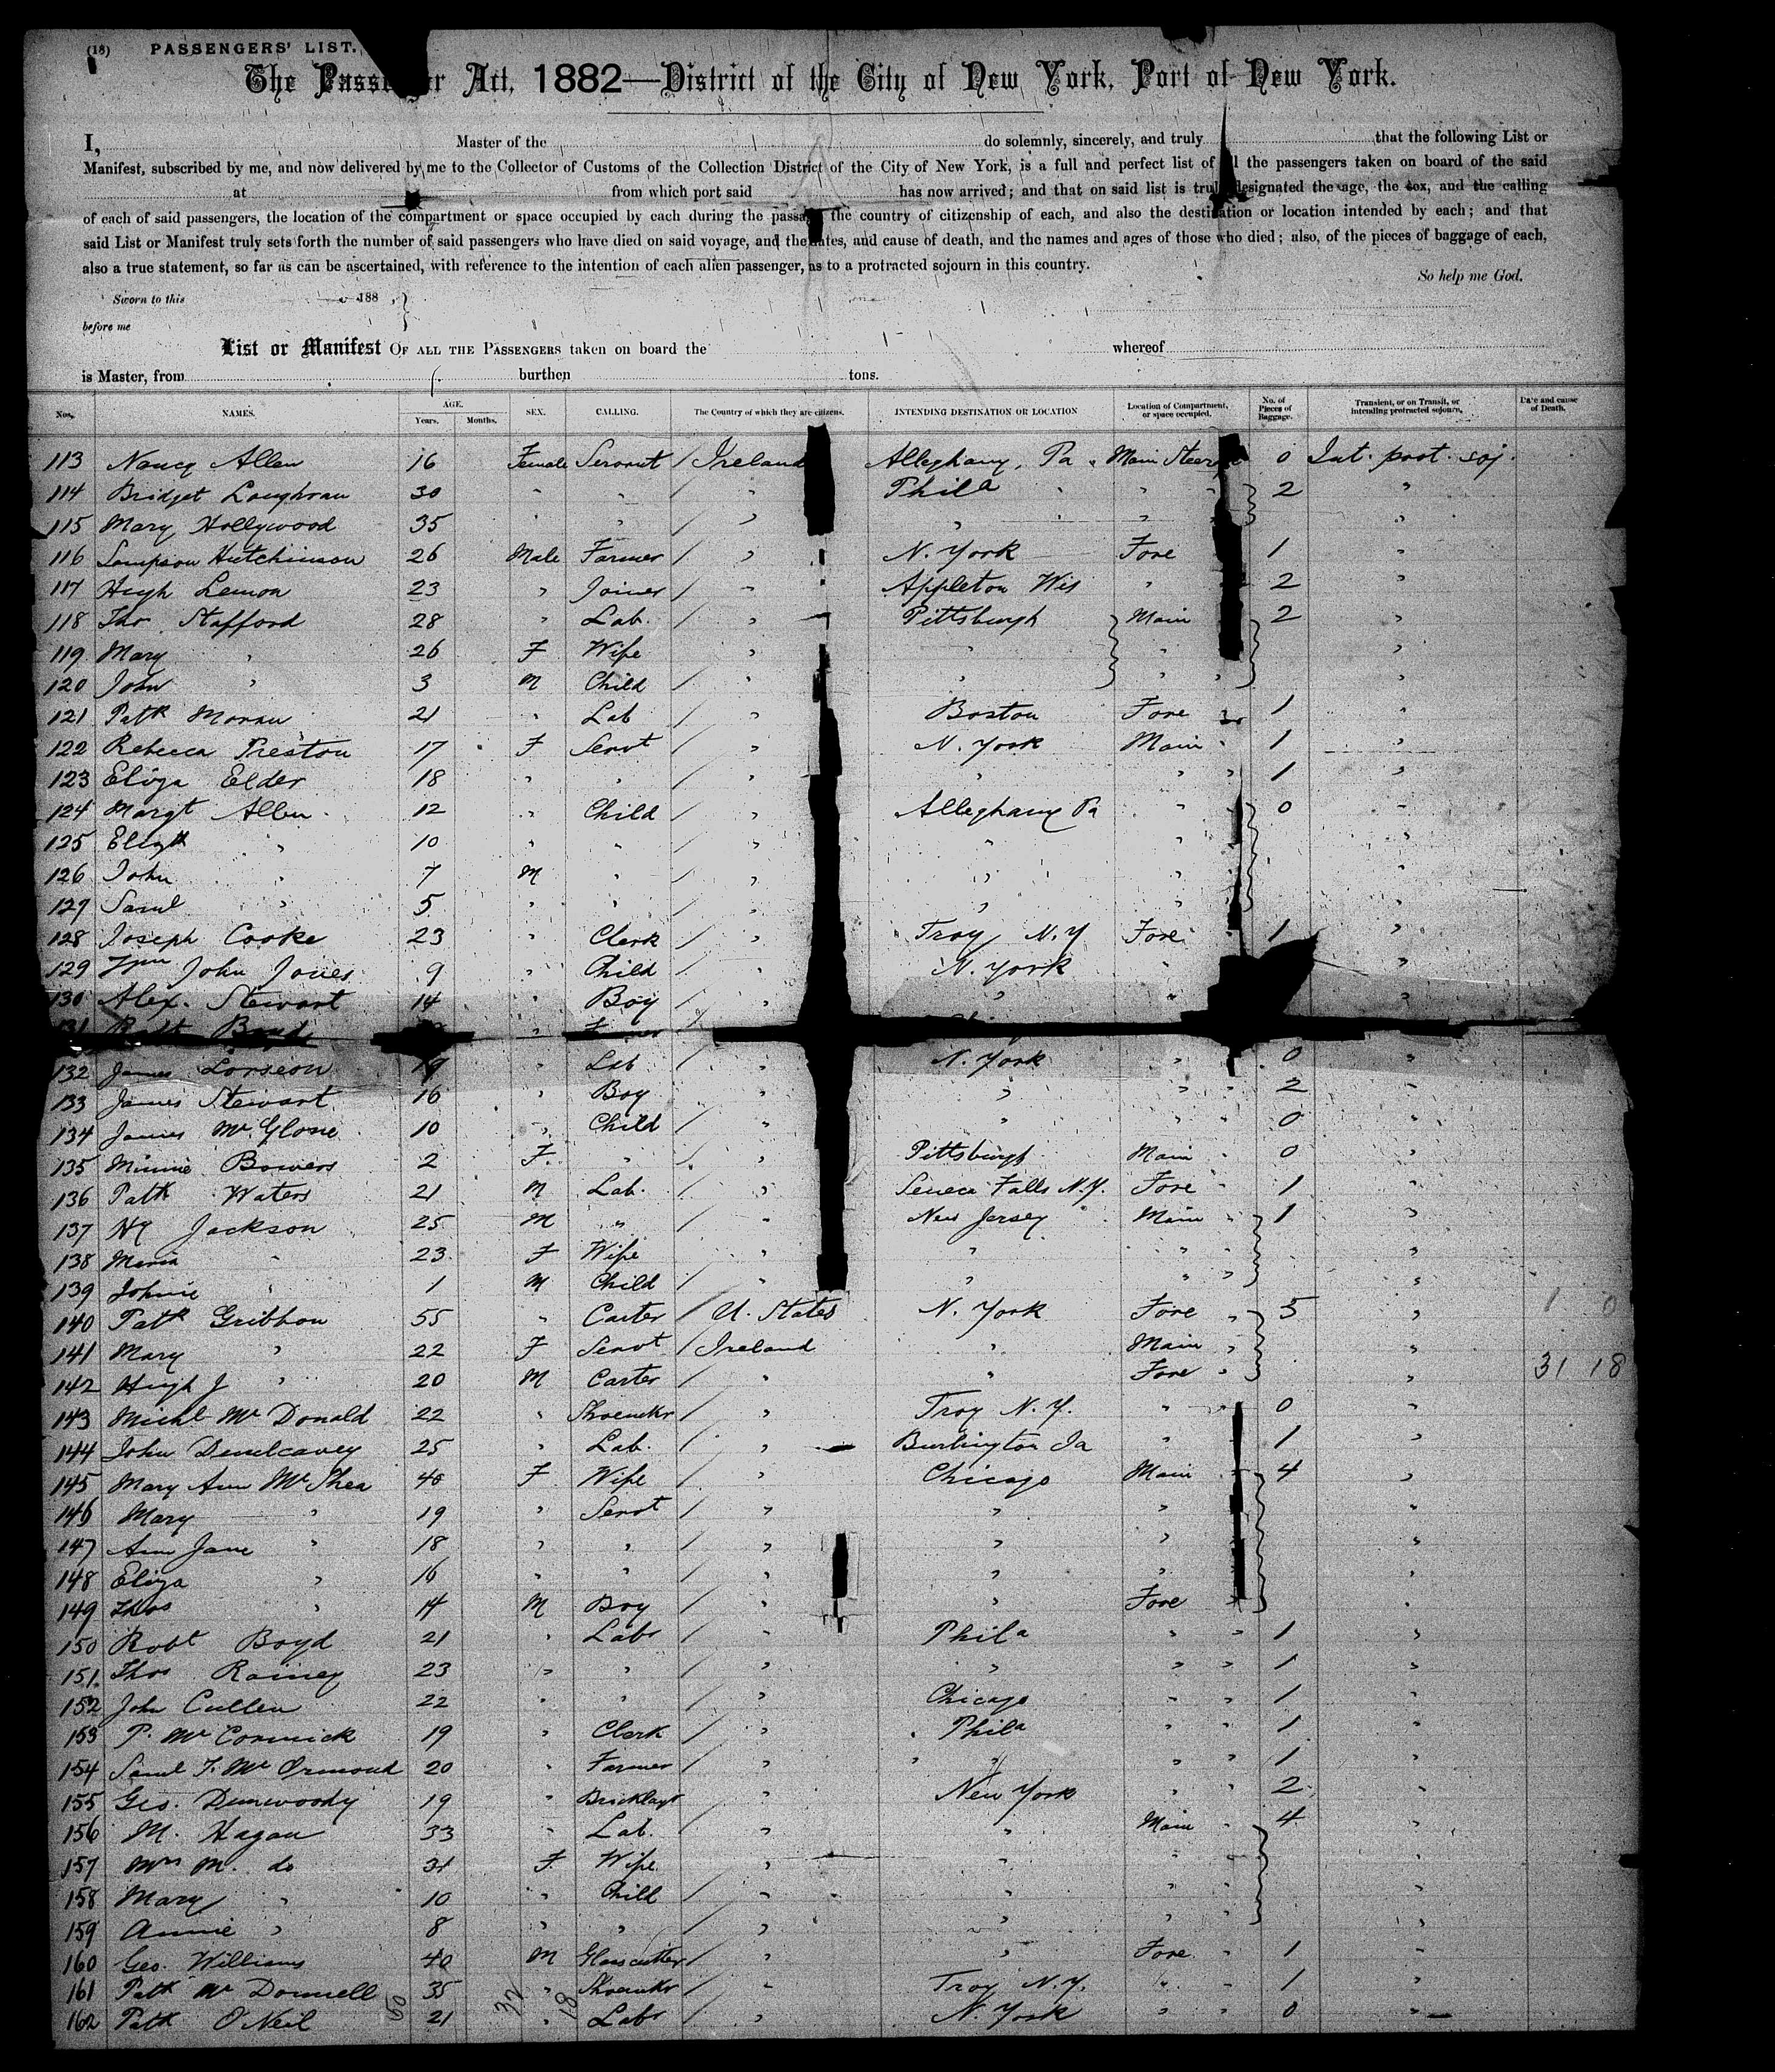 (18) PASSENGERS' LIST.
The Passenger Act, 1882—District of the City of New York, Port of New York.
I, Master of the do solemnly, sincerely, and truly that the following List or
Manifest, subscribed by me, and now delivered by me to the Collector of Customs of the Collection District of the City of New York, is a full and perfect list of all the passengers taken on board of the said
at from which port said has now arrived; and that on said list is truly designated the age, the sex, and the calling
of each of said passengers, the location of the compartment or space occupied by each during the passage the country of citizenship of each, and also the destination or location intended by each; and that
said List or Manifest truly sets forth the number of said passengers who have died on said voyage, and the dates, and cause of death, and the names and ages of those who died; also, of the pieces of baggage of each,
also a true statement, so far as can be ascertained, with reference to the intention of each alien passenger, as to a protracted sojourn in this country.
So help me God.
Sworn to this 188 ,}
before me
List or Manifest OF ALL THE PASSENGERS taken on board the whereof
is Master, from burthen tons.
Nos. NAMES. AGE. Years. Months. SEX. CALLING. The Country of which they are citizens. INTENDING DESTINATION OR LOCATION Location of Compartment, or space occupied. No. of Pieces of Baggage. Transient, or on Transit, or intending protracted sojourn. Date and cause of Death.
113 Nancy Allen 16 Female Servant / Ireland Alleghany, Pa Main Steerage 0 Int. prot. soj.
114 Bridget Loughran 30 " " / " Phila " " 2 "
115 Mary Hollywood 35 " " / " " " " "
116 Sampson Hutchinson 26 Male Farmer / " N. York Fore 1 "
117 Hugh Lemon 23 " Joiner / " Appleton Wis " 2 "
118 Tho Stafford 28 " Lab. / " Pittsburgh Main 2 "
119 Mary " 26 F Wife " " " "
120 John " 3 M Child / " " " " "
121 Patk Moran 21 " Lab / " Boston Fore " 1 "
122 Rebecca Preston 17 F Servt / " N. York Main " 1 "
123 Eliza Elder 18 " " / " " " " 1 "
124 Margt Allen 12 " Child / " Alleghany Pa " 0 "
125 Elizth " 10 " " / " " " "
126 John " 7 M " / " " " "
127 Saml " 5 " " / " " " "
128 Joseph Cooke 23 " Clerk / " Troy N.Y Fore 1 "
129 Wm John Jones 9 " Child / " N. York " "
130 Alex. Stewart 14 " Boy / " " " "
131 Robt Boyd " Farmer
132 James 19 " Lab / " N. York " 0 "
133 James Stewart 16 " Boy " " " " 2 "
134 James McGlone 10 " Child / " " " " 0 "
135 Minnie Bowers 2 F. " / " Pittsburgh Main " 0 "
136 Patk Waters 21 M Lab. / " Seneca Falls N.Y. Fore " 1 "
137 Hy Jackson 25 M " / " New Jersey Main " 1 "
138 Maria " 23 F Wife " " " "
139 Johnie " 1 M Child / " " " " "
140 Patk Gribbon 55 " Carter / U. States N. York Fore " 5 " 1 0
141 Mary " 22 F Servt / Ireland " Main " "
142 Hugh J " 20 M Carter / " " Fore " " 31 18
143 Michl McDonald 22 " Shoemkr / " Troy N.Y. " " 0 "
144 John 25 " Lab. / " Burlington Ia " 1 "
145 Mary Ann McShea 40 F Wife / " Chicago Main " 4 "
146 Mary " 19 " Servt / " " " "
147 Ann Jane " 18 " " / " " " "
148 Eliza " 16 " " / " " " "
149 Thos " 14 M Boy / " " Fore "
150 Robt Boyd 21 " Labr / " Phila " " 1 "
151 Thos Rainey 23 " " / " " " " 1 "
152 John Cullen 22 " " / " Chicago " " 1 "
153 P. McCormick 19 " Clerk / " Phila " " 1 "
154 Saml F. McOrmond 20 " Farmer / " " " " 1 "
155 Geo. Dunwoody 19 " Bricklayr " New York " " 2 "
156 M. Hagan 33 " Lab. / " " Main " 4 "
157 Mrs M. do 31 F. Wife " " " " "
158 Mary " 10 " Child / " " " " "
159 Annie " 8 " " / " " " " "
160 Geo. Williams 40 M Glasscutter / " " Fore " 1 "
161 Patk McDonnell 35 " Shoemkr / " Troy N.Y. " " 1 "
162 Patk O'Neil 21 " Labr / " N. York " " 0 "
50 32 18